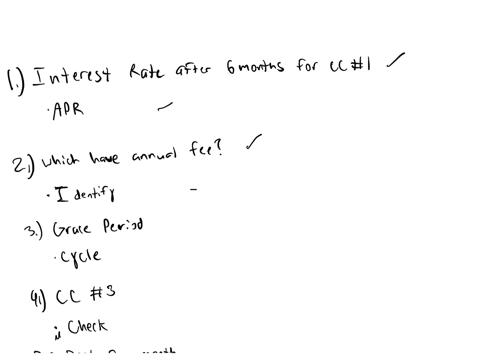 1.) Interest Rate after 6 months for CC #1 ✓
· APR ✓
2.) Which have annual fee? ✓
· Identify -
3.) Grace Period
· Cycle
4.) CC #3
Check